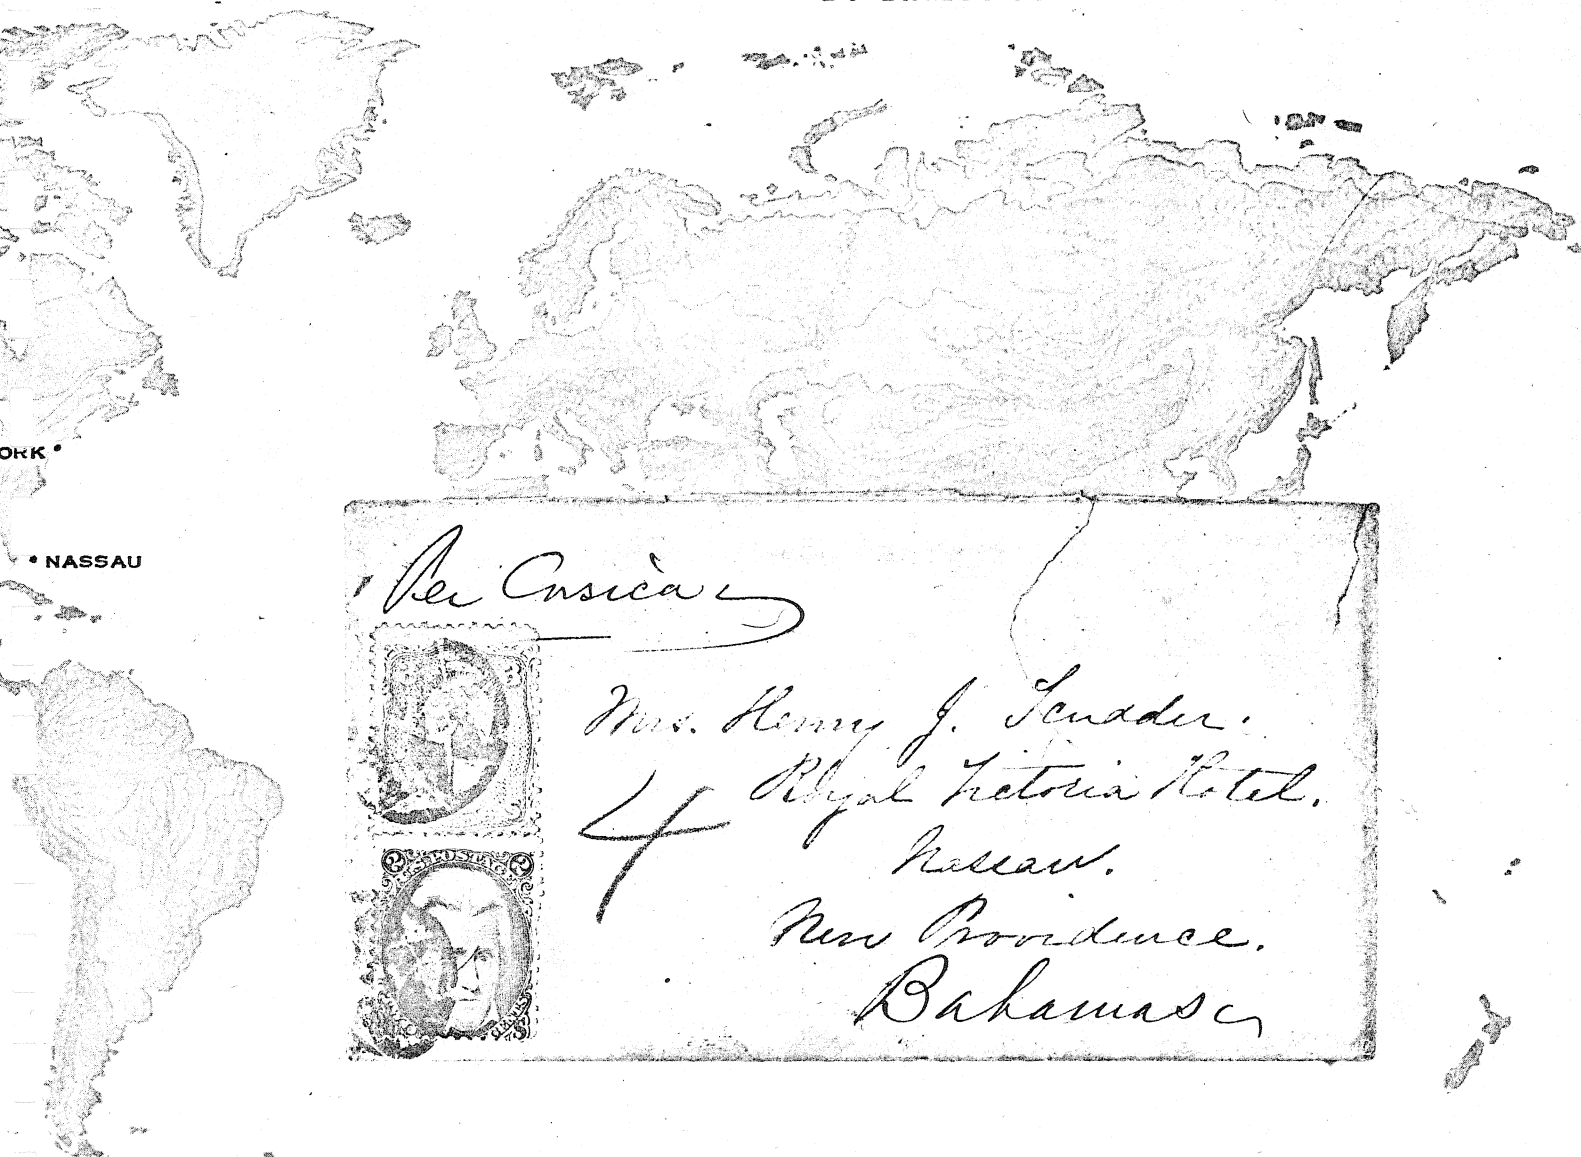 ORK
NASSAU
Per Corsica
Mrs. Henry J. Scudder.
Royal Victoria Hotel.
4
Nassau.
New Providence.
Bahamas
2 S. POSTAGE 2